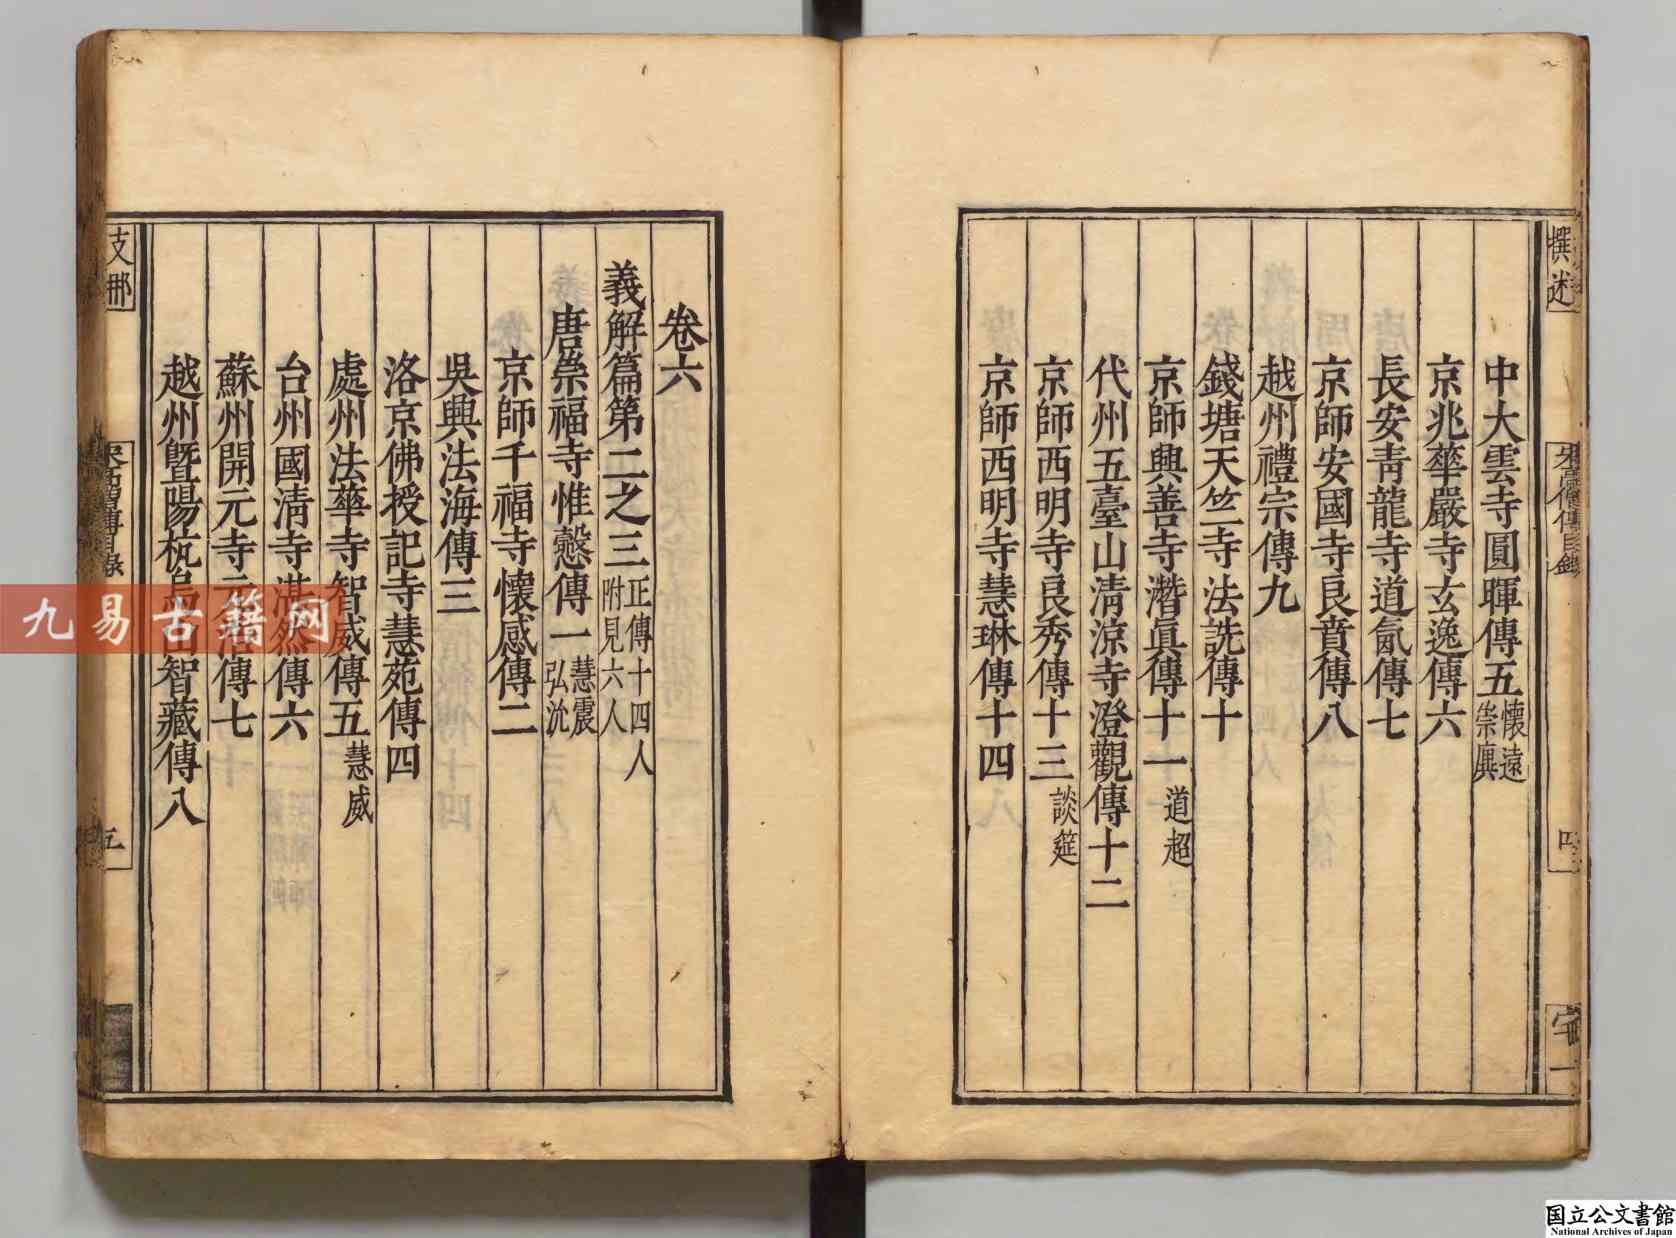 撰述
宋高僧傳目錄
四
中大雲寺圓暉傳五懷遠崇廙
京兆華嚴寺玄逸傳六
長安青龍寺道氤傳七
京師安國寺良賁傳八
越州禮宗傳九
錢塘天竺寺法詵傳十
京師興善寺潛真傳十一道超
代州五臺山清涼寺澄觀傳十二
京師西明寺良秀傳十三談筵
京師西明寺慧琳傳十四
卷六
義解篇第二之三正傳十四人附見六人
唐崇福寺惟慤傳一慧震弘沇
京師千福寺懷感傳二
吳興法海傳三
洛京佛授記寺慧苑傳四
處州法華寺智威傳五慧威
台州國清寺湛然傳六
蘇州開元寺元浩傳七
越州暨陽杭烏山智藏傳八
支那
宋高僧傳目錄
五
九易古籍网
国立公文書館
National Archives of Japan